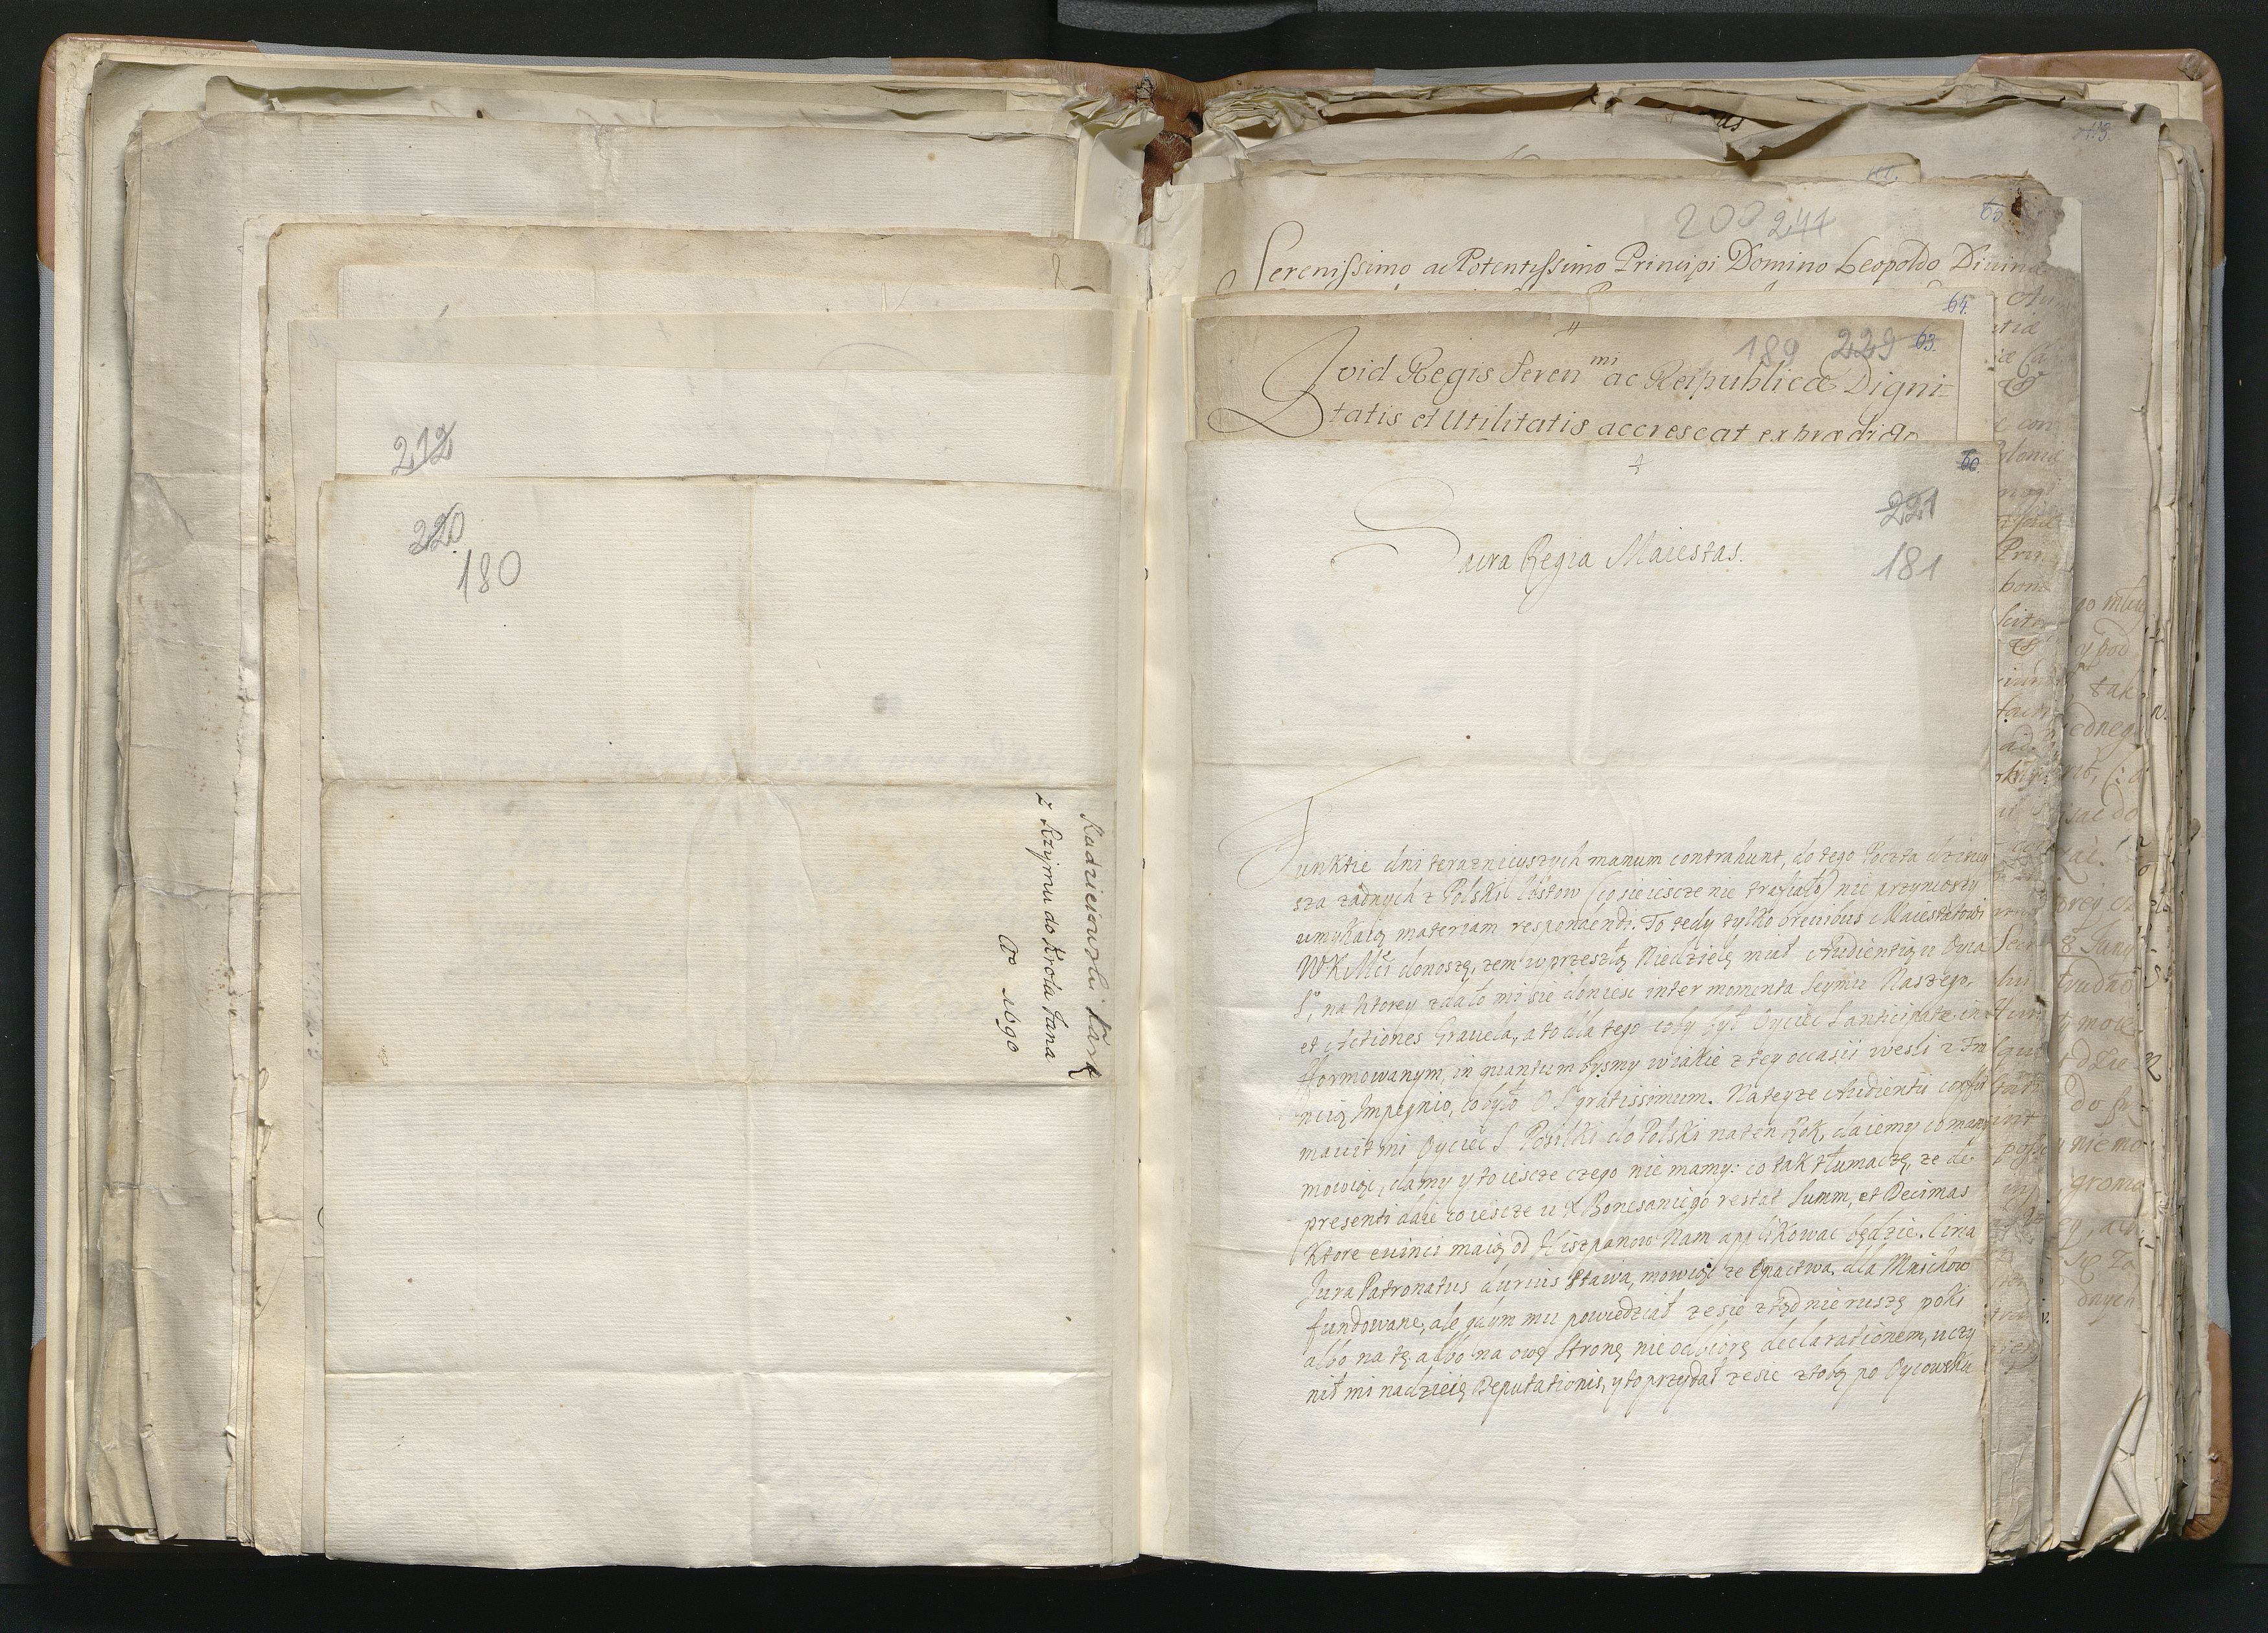 212
220
180
Radzieiowski Kard
z Rzymu do Krola Jana
Ao 1690
200 241
65.
Serenissimo ac Potentissimo Principi Domino Leopoldo Divina
64.
189 229 63.
Quid Regis Seren mi ac Reipublicæ Digni-
tatis et Utilitatis accrescat ex prædicto
60.
221
Sacra Regia Maiestas.
181
Funktie dni teraznieyszych manum contrahunt, do tego Poczta dzisiey
sza zadnych z Polski listow (co sie iescze nie trafiało) nie przyniosszy
umykaią materiam respondendi. To tedy tylko brevibus Maiestatowi
WKMci donoszę, zem w przeszłą Niedzielę miał Audientią u Oyca
S. na ktorey zdało mi sie doniesc inter momenta Seymu Naszego,
et Actiones Gravela, a to dla tego coby był Oyciec S anticipate in
formowanym, in quantum bysmy w iakie z tey occasii wesli z Fra
ncią Impegnio, co było O S gratissimum. Na teyze Audientii confir
mavit mi Oyciec S Posiłki do Polski na ten Rok, daiemy co mamy
mowiąc, damy y to iescze czego nie mamy: co tak tłumaczę, ze de
presenti daie co iescze u X Bonesaniego restat Summ, et Decimas
Ktore evinci maią od Hiszpanow Nam applikowac będzie. Circa
Jura Patronatus durius stawa, mowiąc ze Opactwa dla Mnichow
fundowane, ale gdym mu powiedział ze sie ztąd nie ruszę poki
albo na tę albo na owę stronę nie odbiorę declarationem, uczy
nił mi nadzieię Deputationis, y to przydał ze sie z tobą po Oycowsku